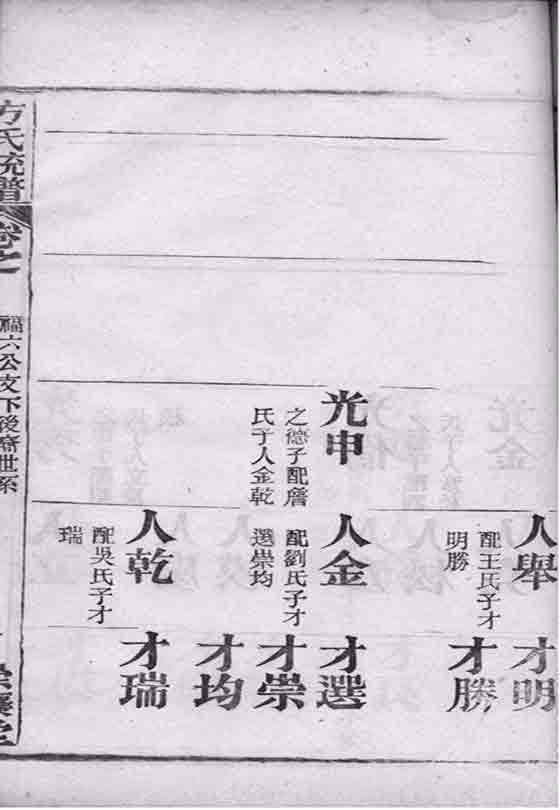 人舉
配王氏子才
明勝
才明
才勝
光申
之德子配詹
氏子人金乾
人金
配劉氏子才
選崇均
才選
才崇
才均
人乾
配吳氏子才
瑞
才瑞
方氏統譜
卷之
福六公支下後裔世系